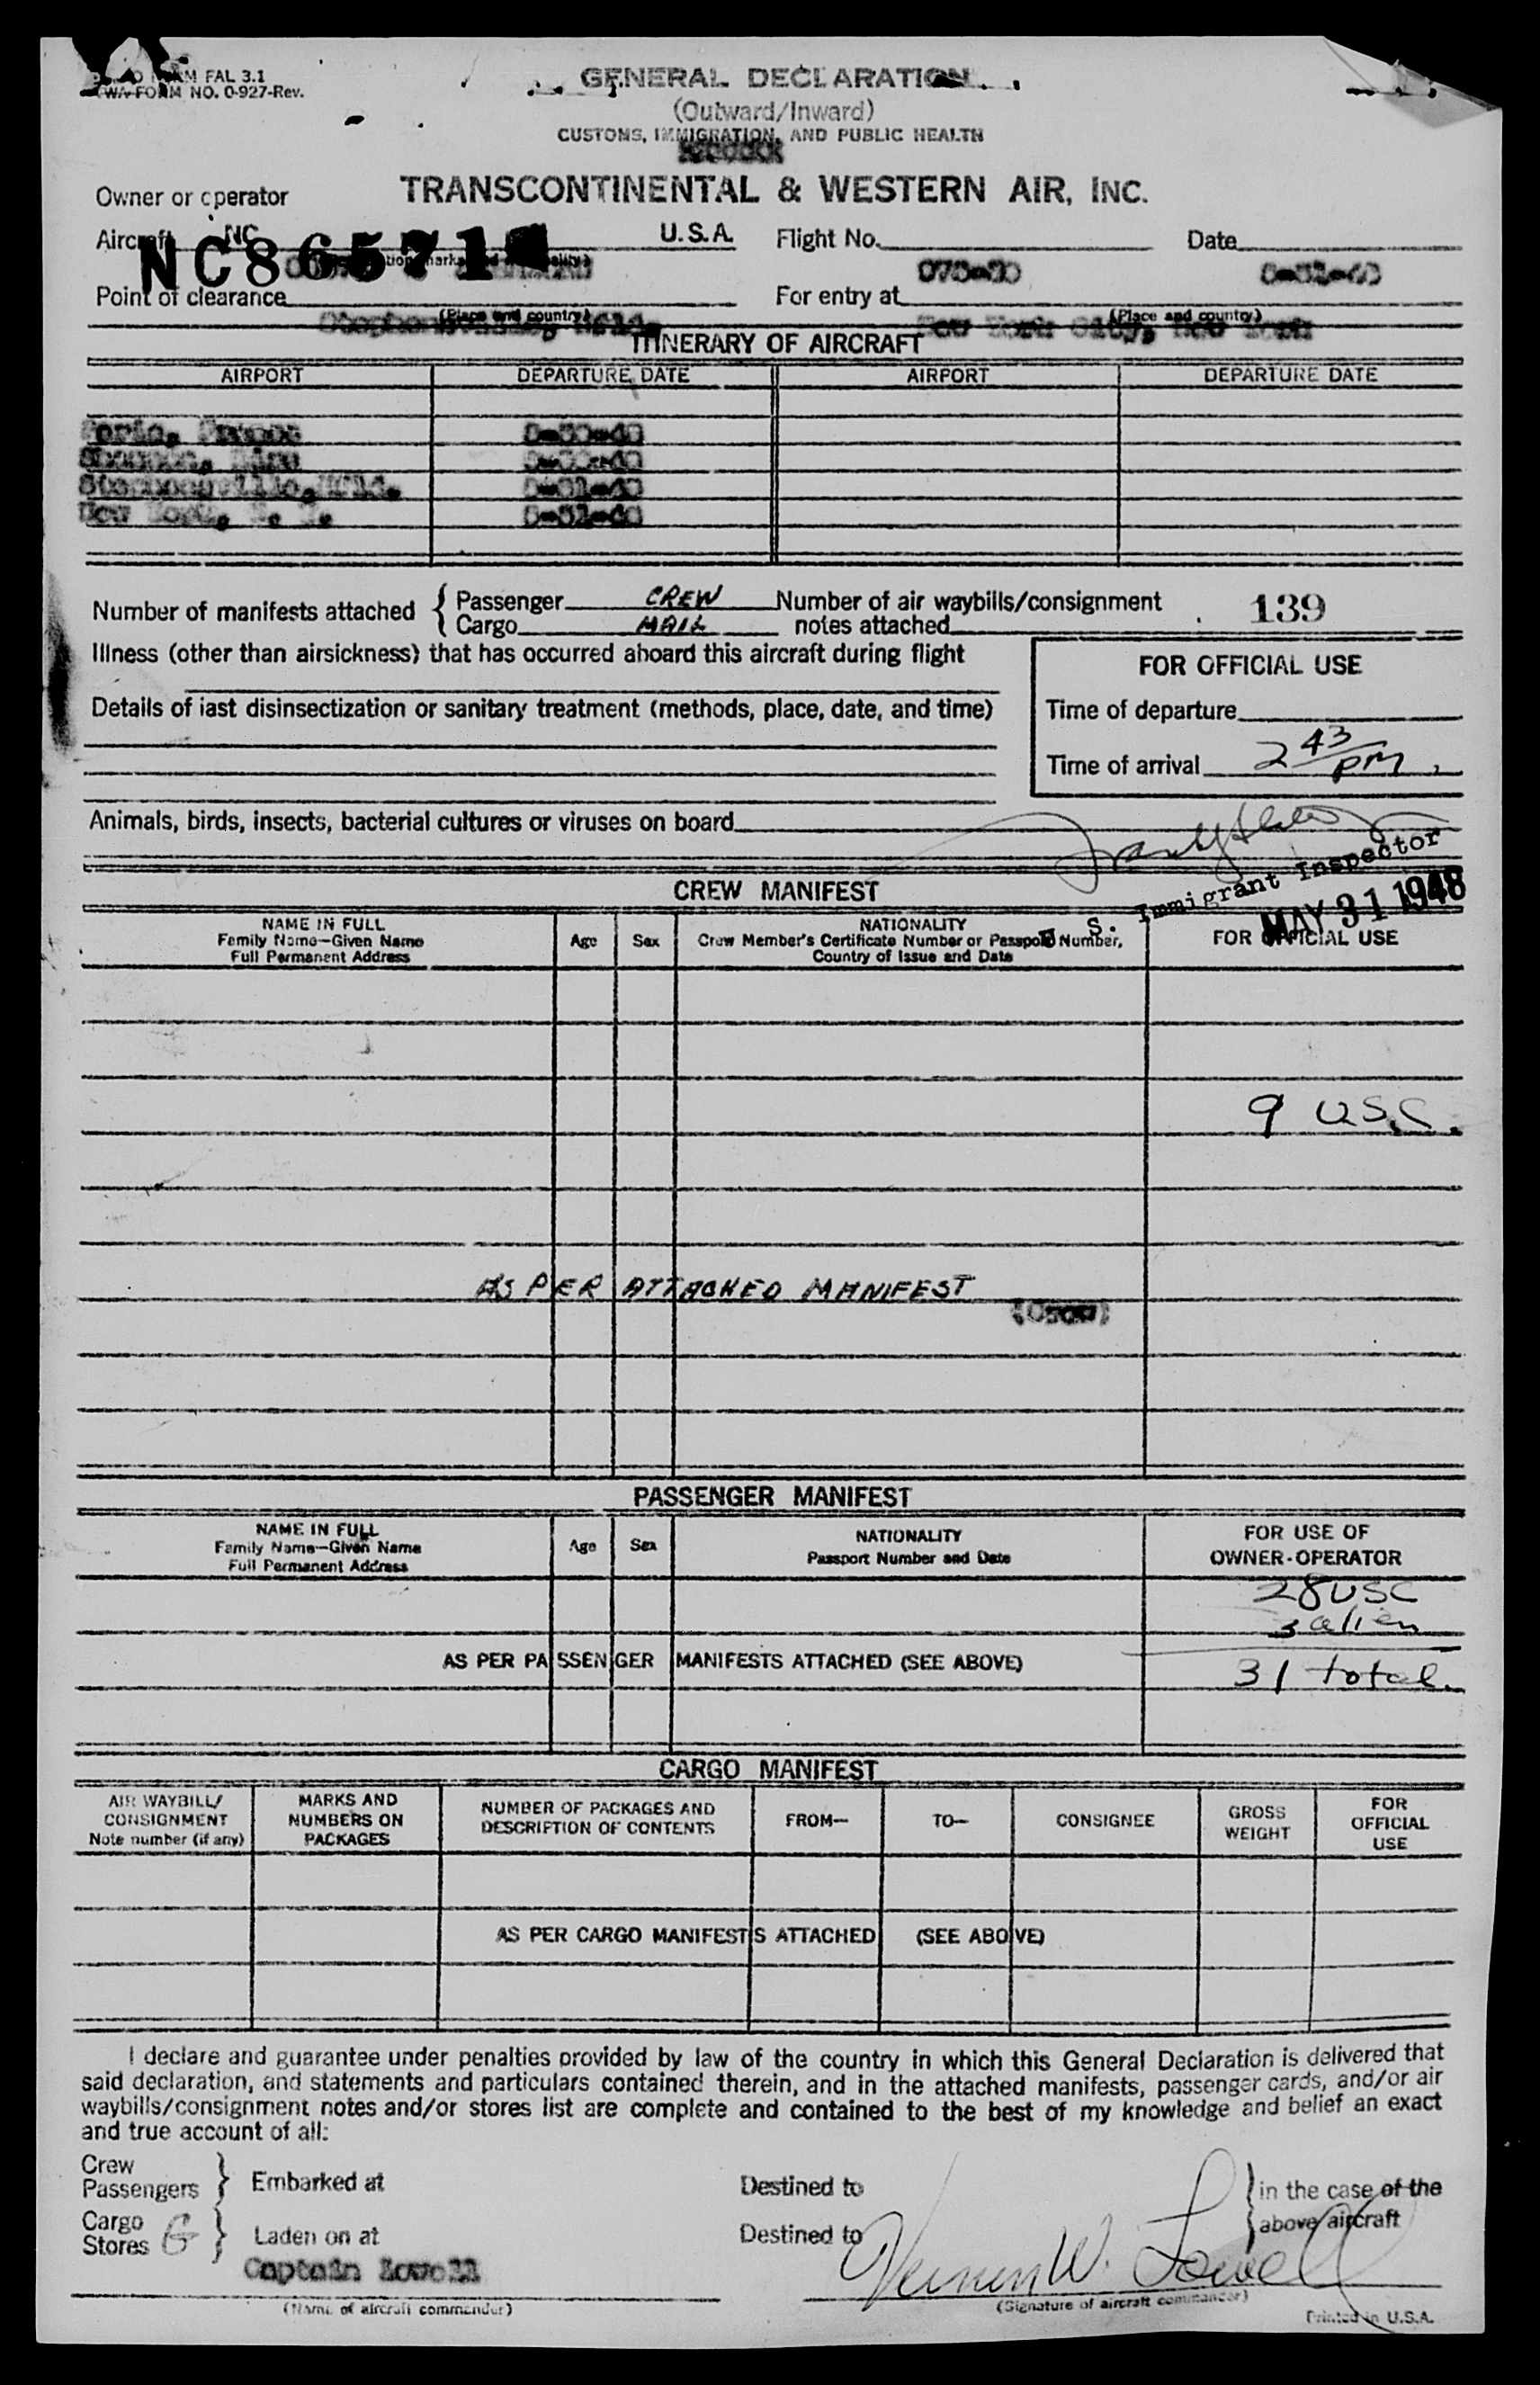 FORM FAL 3.1
TWA FORM NO. 0-927-Rev.
GENERAL DECLARATION
(Outward/Inward)
CUSTOMS, IMMIGRATION, AND PUBLIC HEALTH
Owner or operator TRANSCONTINENTAL & WESTERN AIR, INC.
Aircraft NC U.S.A. Flight No. Date
NC86571
Point of clearance For entry at
(Place and country) (Place and country)
New York City, New York
ITINERARY OF AIRCRAFT
AIRPORT DEPARTURE DATE AIRPORT DEPARTURE DATE
Paris, France 5-30-48
Shannon, Eire 5-30-48
Stephenville, Nfld. 5-31-48
New York, N. Y. 5-31-48
Number of manifests attached { Passenger CREW Number of air waybills/consignment
Cargo MAIL notes attached 139
Illness (other than airsickness) that has occurred aboard this aircraft during flight
FOR OFFICIAL USE
Details of last disinsectization or sanitary treatment (methods, place, date, and time)
Time of departure
Time of arrival 2 43 PM
Animals, birds, insects, bacterial cultures or viruses on board
Immigrant Inspector
MAY 31 1948
CREW MANIFEST
NAME IN FULL
Family Name—Given Name
Full Permanent Address
Age Sex
NATIONALITY
Crew Member's Certificate Number or Passport Number,
Country of Issue and Date
FOR OFFICIAL USE
9 USC.
AS PER ATTACHED MANIFEST
(Crew)
PASSENGER MANIFEST
NAME IN FULL
Family Name—Given Name
Full Permanent Address
Age Sex
NATIONALITY
Passport Number and Date
FOR USE OF
OWNER-OPERATOR
28 USC
3 alien
AS PER PASSENGER MANIFESTS ATTACHED (SEE ABOVE)
31 total.
CARGO MANIFEST
AIR WAYBILL/
CONSIGNMENT
Note number (if any)
MARKS AND
NUMBERS ON
PACKAGES
NUMBER OF PACKAGES AND
DESCRIPTION OF CONTENTS
FROM—
TO—
CONSIGNEE
GROSS
WEIGHT
FOR
OFFICIAL
USE
AS PER CARGO MANIFESTS ATTACHED (SEE ABOVE)
I declare and guarantee under penalties provided by law of the country in which this General Declaration is delivered that
said declaration, and statements and particulars contained therein, and in the attached manifests, passenger cards, and/or air
waybills/consignment notes and/or stores list are complete and contained to the best of my knowledge and belief an exact
and true account of all:
Crew
Passengers } Embarked at Destined to } in the case of the
Cargo
Stores } Laden on at Destined to above aircraft
Captain Lowell Vernon W. Lowell
(Name of aircraft commander) (Signature of aircraft commander)
Printed in U.S.A.